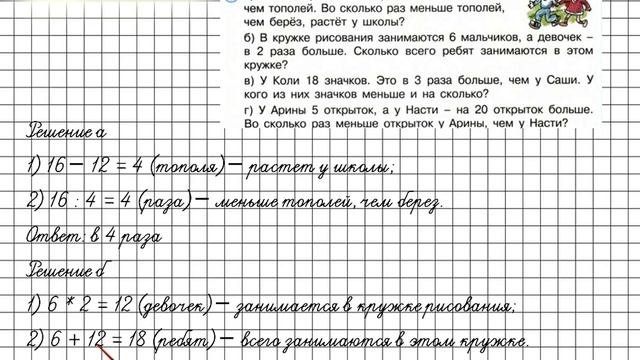 чем тополей. Во сколько раз меньше тополей,
чем берёз, растёт у школы?
б) В кружке рисования занимаются 6 мальчиков, а девочек –
в 2 раза больше. Сколько всего ребят занимаются в этом
кружке?
в) У Коли 18 значков. Это в 3 раза больше, чем у Саши. У
кого из них значков меньше и на сколько?
г) У Арины 5 открыток, а у Насти – на 20 открыток больше.
Во сколько раз меньше открыток у Арины, чем у Насти?
Решение а
1) 16 – 12 = 4 (тополя) – растет у школы;
2) 16 : 4 = 4 (раза) – меньше тополей, чем берез.
Ответ: в 4 раза
Решение б
1) 6 * 2 = 12 (девочек) – занимается в кружке рисования;
2) 6 + 12 = 18 (ребят) – всего занимаются в этом кружке.